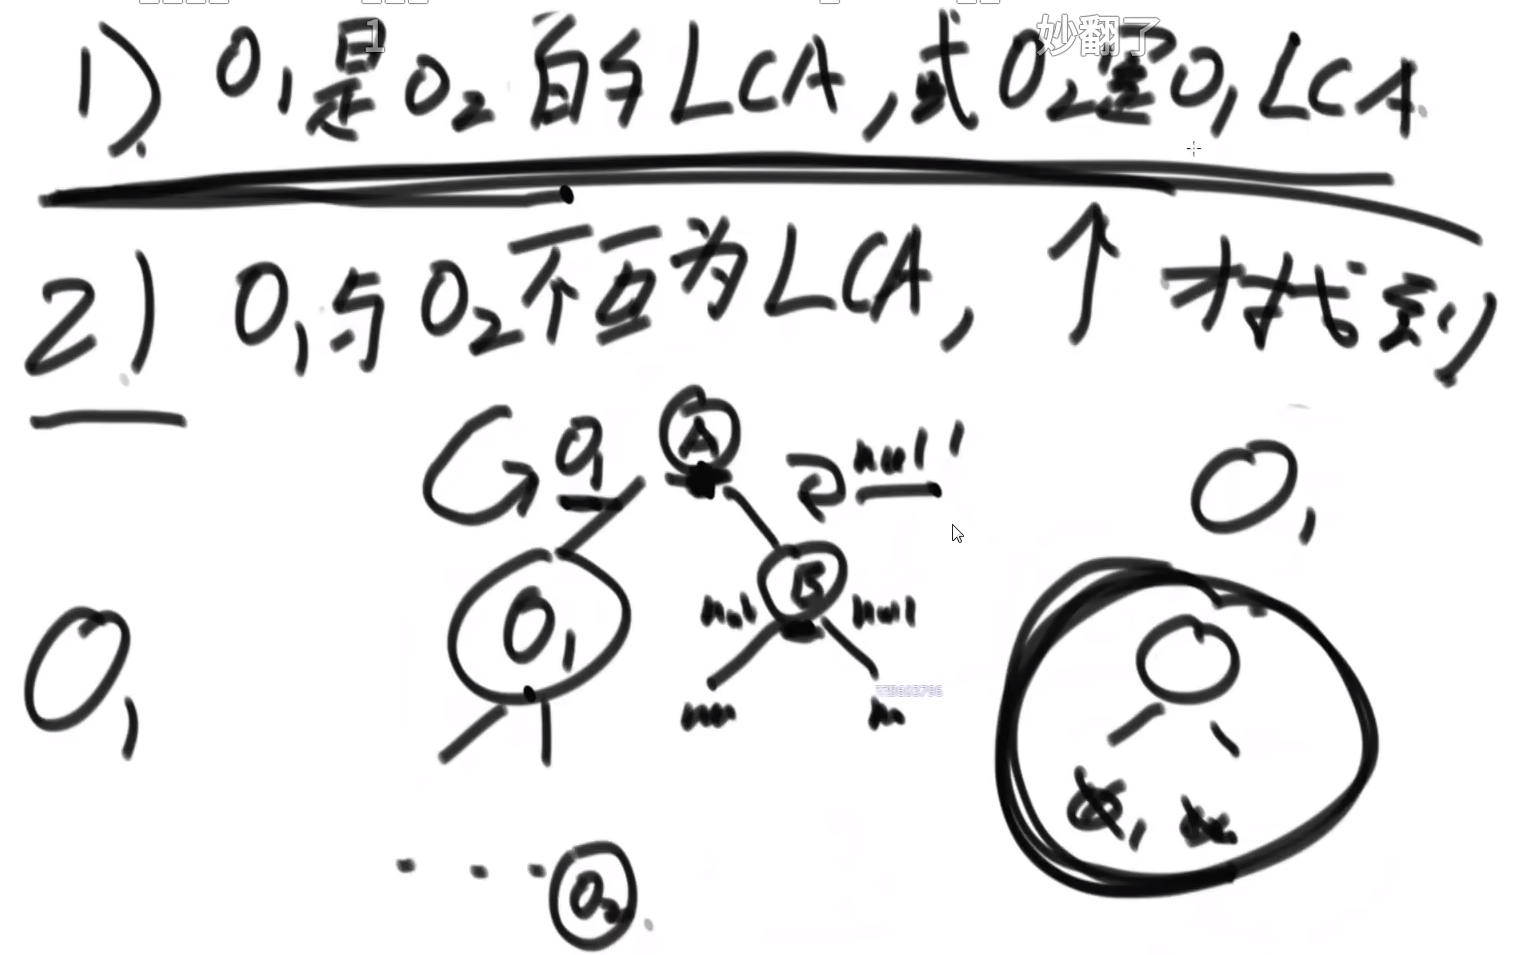 1
妙翻了
1). O1是O2的LCA,或O2是O1LCA
2) O1与O2不互为LCA, ↑ 才找到
O1
A
null
O1
O1
O1
B
null
null
null
O2